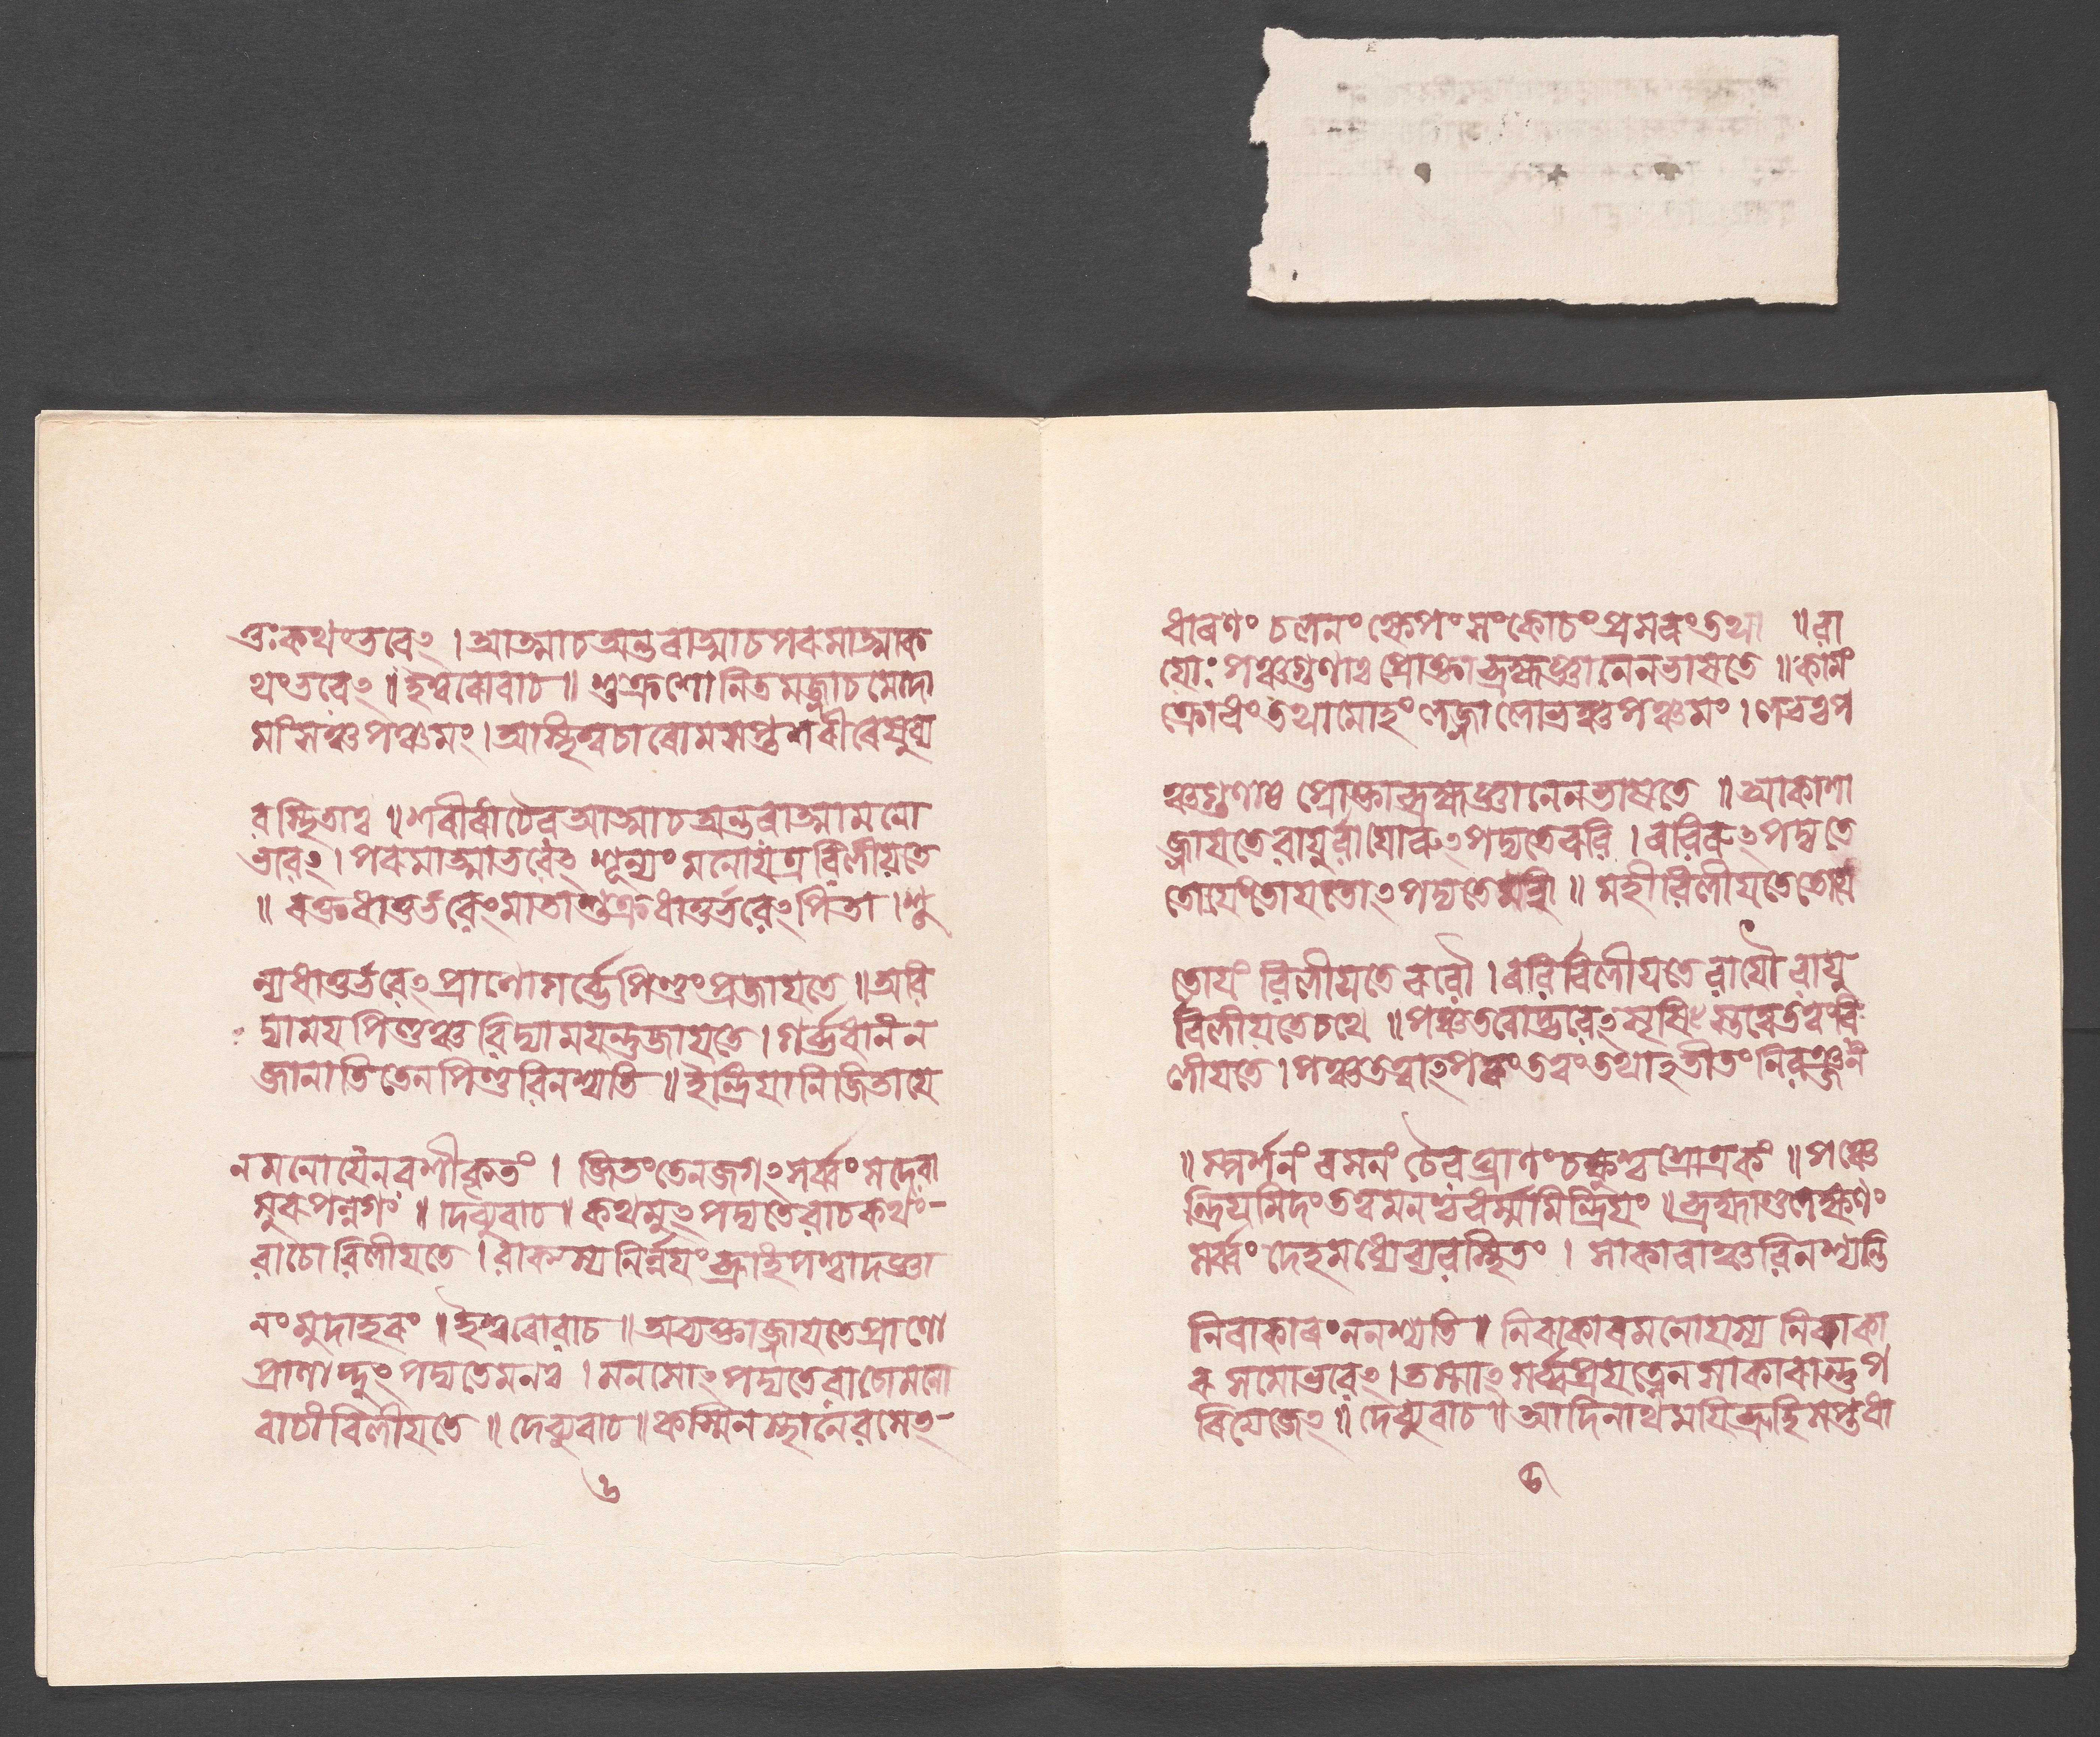 তুঃ কথং ভবেৎ । আত্মাচঅন্তৰাত্মাচপৰমাত্মাক
থংভবেৎ ॥ ইশ্বৰোবাচ ॥ শুক্রশোনিতমজ্জাচমেদো
মাংসঞ্চপঞ্চমং । আস্থিত্বচাৰোমসপ্তশৰীৰেষুব্য
বস্থিতাঃ ॥ শৰীৰাচৈবআত্মাচঅন্তৰাত্মামনো
ভবেৎ । পৰমাত্মাভবেৎ শূন্যং মনোযত্রবিলীয়তে
॥ ৰক্তধাতুর্ভবেৎমাতাশুক্রধাতুর্ভবেৎপিতা । শু
ন্যধাতুর্ভবেৎপ্রাণোগর্ব্ভেপিণ্ডংপ্রজায়তে ॥ অবি
দ্যাময়পিণ্ডঞ্চবিদ্যাময়ন্তুজায়তে । গর্ব্ভধানংন
জানাতিতেনপিণ্ডবিনশ্যতি ॥ ইন্দ্রিয়ানিজিতাযে
নমনোযেনবশীকৃতং । জিতংতেনজগৎসর্ব্বংসদেবা
সুৰপন্নগং ॥ দেব্যুবাচ ॥ কথমুৎপদ্যতেবাচকথং-
বাচোবিলীয়তে । বাকস্যনির্ন্নয়ংব্রূহিপশ্চাদজ্ঞা
নংমুদাহৰং ॥ ইশ্বৰোবাচ ॥ অব্যক্তাজ্জায়তেপ্রাণো
প্রাণাদুৎপদ্যতেমনঃ । মনসোৎপদ্যতেবাচোমনো
বাচাবিলীয়তে ॥ দেব্যুবাচ ॥ কস্মিনস্থানেবসেৎ-
৬
ধাৰণং চলনং ক্ষেপং সংকোচং প্রসৰংতথা ॥ বা
যোঃ পঞ্চগুণাঃ প্রোক্তাব্রহ্মজ্ঞানেনভাষতে ॥ কামং
ক্রোধং তথামোহং লজ্জালোভঞ্চপঞ্চমং । নভঃপ
ঞ্চগুণাঃ প্রোক্তাব্রহ্মজ্ঞানেনভাষতে ॥ আকাশা
জ্জায়তেবায়ুর্বাযোৰুৎপদ্যতেৰবি । ৰবিৰুৎপদ্যতে
তোয়ংতোয়তোৎপদ্যতেমহী ॥ মহীবিলীয়তেতোয়ে
তোয়ং বিলীয়তেৰবৌ । ৰবির্বিলীয়তেবাযৌ বায়ু
র্বিলীয়তেচখে ॥ পঞ্চতত্বোদ্ভবেৎসৃষ্টিস্তত্বেতত্বংবি
লীয়তে । পঞ্চতত্বাৎপৰংতত্বংতথাৎতীতংনিৰঞ্জনং
॥ স্পর্শনং ৰসনং চৈবঘ্রাণং চক্ষুশ্চশ্রোত্রকং ॥ পঞ্চে
ন্দ্রিয়মিদংতত্বমনশ্চধর্ম্মমিন্দ্রিয়ং ॥ ব্রহ্মাণ্ডলক্ষণং
সর্ব্বং দেহমধ্যেব্যবস্থিতং । সাকাৰাঞ্চবিনশ্যন্তি
নিৰাকাৰং ননশ্যতি ॥ নিৰাকাৰমনোযস্য নিৰাকা
ৰ সমোভবেৎ । তস্মাৎ সর্ব্বপ্রযত্নেন সাকাৰাস্তুপ
ৰিযেজেৎ ॥ দেব্যুবাচ ॥ আদিনাথময়িব্রূহিসপ্তধা
৫